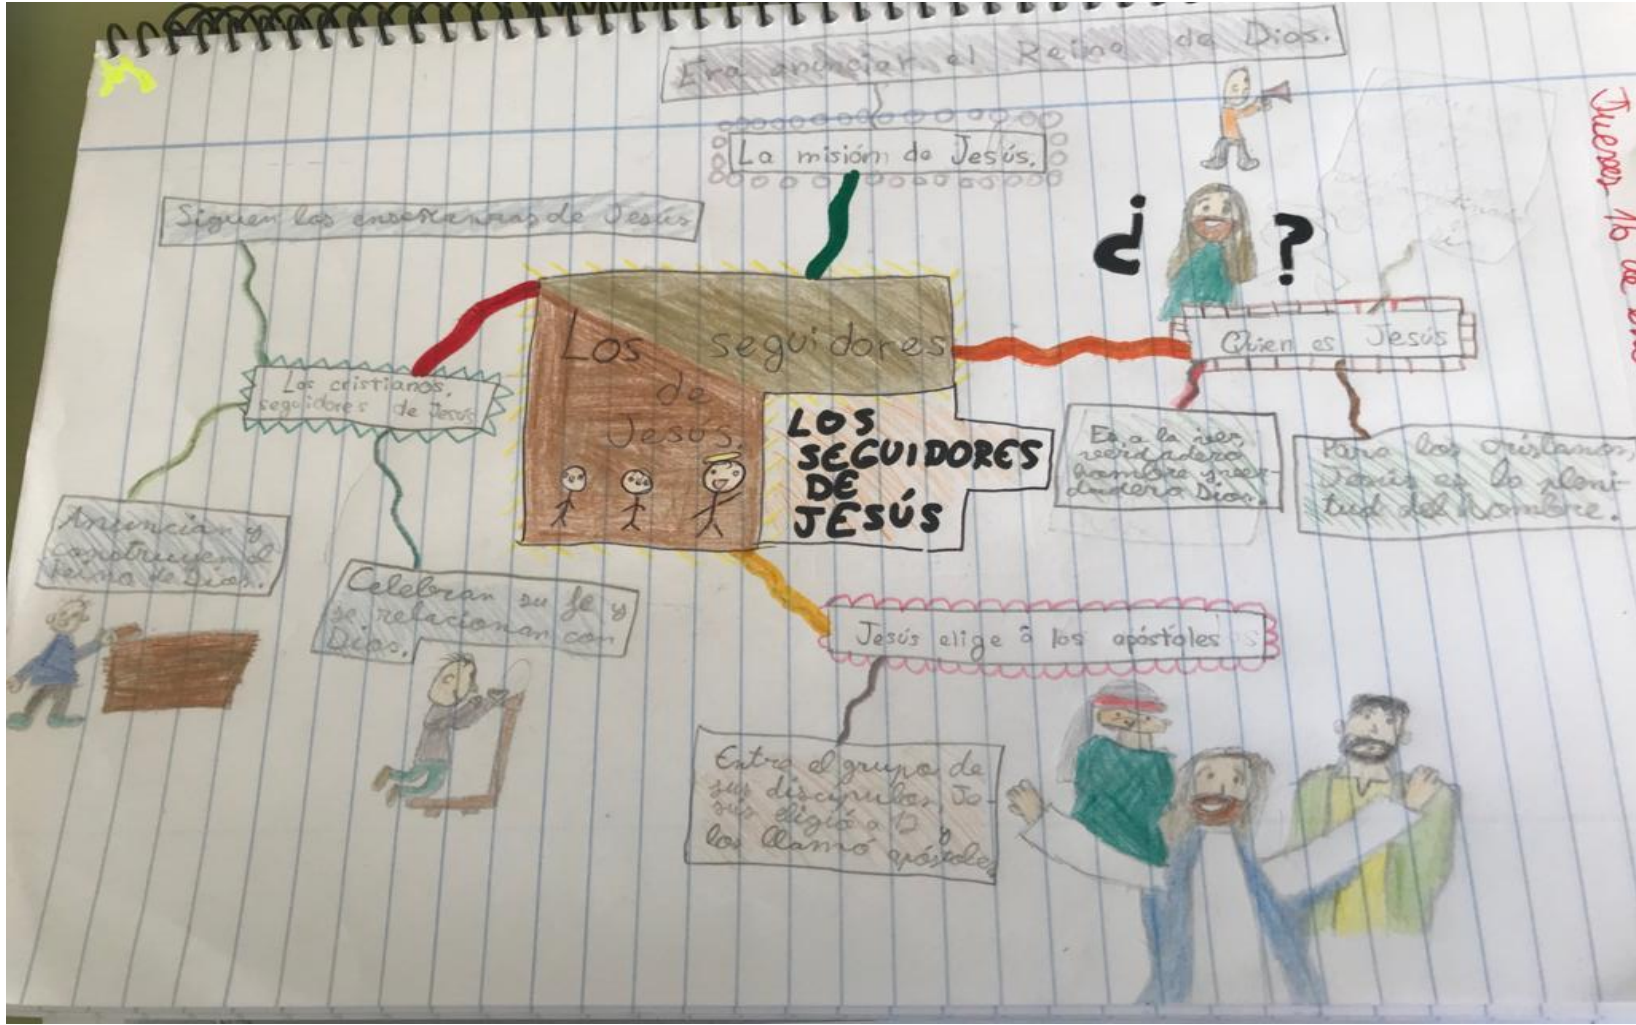 Era anunciar el Reino de Dios.
La misión de Jesús.
Jueves 16 de
Siguen las enseñanzas de Jesús
¿ ?
Quien es Jesús
Los seguidores
de
Jesús.
LOS
SEGUIDORES
DE
JESÚS
Los cristianos,
seguidores de Jesús
Es a la vez
verdadero
hombre y ver-
dadero Dios.
Para los cristianos,
Jesús es la pleni-
tud del hombre.
Anuncian y
construyen el
reino de Dios.
Celebran su fe y
se relacionan con
Dios.
Jesús elige a los apóstoles
Entre el grupo de
sus discípulos, Je-
sús eligió a 12 y
los llamó apóstoles